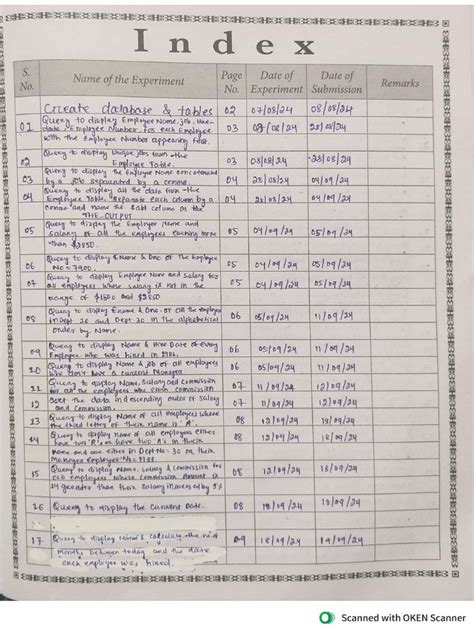 Index
S. No. Name of the Experiment Page No. Date of Experiment Date of Submission Remarks
Create database & tables 02 07/08/24 08/08/24
01 Query to display Employee Name, job, hire
date, Employee Number for each Employee 03 08/08/24 28/08/24
with the Employee Number appearing first.
02 Query to display unique jobs from the
Employee Table. 03 08/08/24 28/08/24
03 Query to display the Employee Name concatenated
by a job separated by a comma. 04 28/08/24 04/09/24
04 Query to display all the data from the
Employee Table. Separate each column by a 04 28/08/24 04/09/24
comma and name the said column as the
THE_OUTPUT
05 Query to display the Employee Name and
salary of all the employees earning more 05 04/09/24 05/09/24
than $2850.
06 Query to display EName & Dno. of the Employee
No = 7900. 05 04/09/24 05/09/24
07 Query to display Employee Name and Salary for
all employees whose salary is not in the 05 04/09/24 05/09/24
range of $1500 and $2850
08 Query to display Ename & Dno. of all the employees
in Dept 10 and Dept 30 in the alphabetical 06 05/09/24 11/09/24
orders by Name.
09 Query to display Name & Hire Date of every
Employee who was hired in 1981. 06 05/09/24 11/09/24
10 Query to display Name & job of all employees
who don't have a current Manager 06 05/09/24 11/09/24
11 Query to display Name, Salary and Commission
for all the employees who each Commission 07 11/09/24 12/09/24
12 Sort the data in descending order of Salary
and Commission. 07 11/09/24 12/09/24
13 Query to display Name of all employees where
the third letter of their name is 'A' 08 12/09/24 18/09/24
14 Query to display name of all employees either
have two 'R's or have two 'A's in their 08 12/09/24 18/09/24
Name and are either in Dept No = 30 or their
Manager
15 Query to display Name, Salary & Commission for
all employees whose Commission Amount is 08 12/09/24 18/09/24
14 greater than their Salary increased by 5%
16 Query to display the Current Date. 08 18/09/24 19/09/24
17 Query to display Name & calculate the no. of 09 18/09/24 19/09/24
months between today and the date
each employee was hired.
Scanned with OKEN Scanner